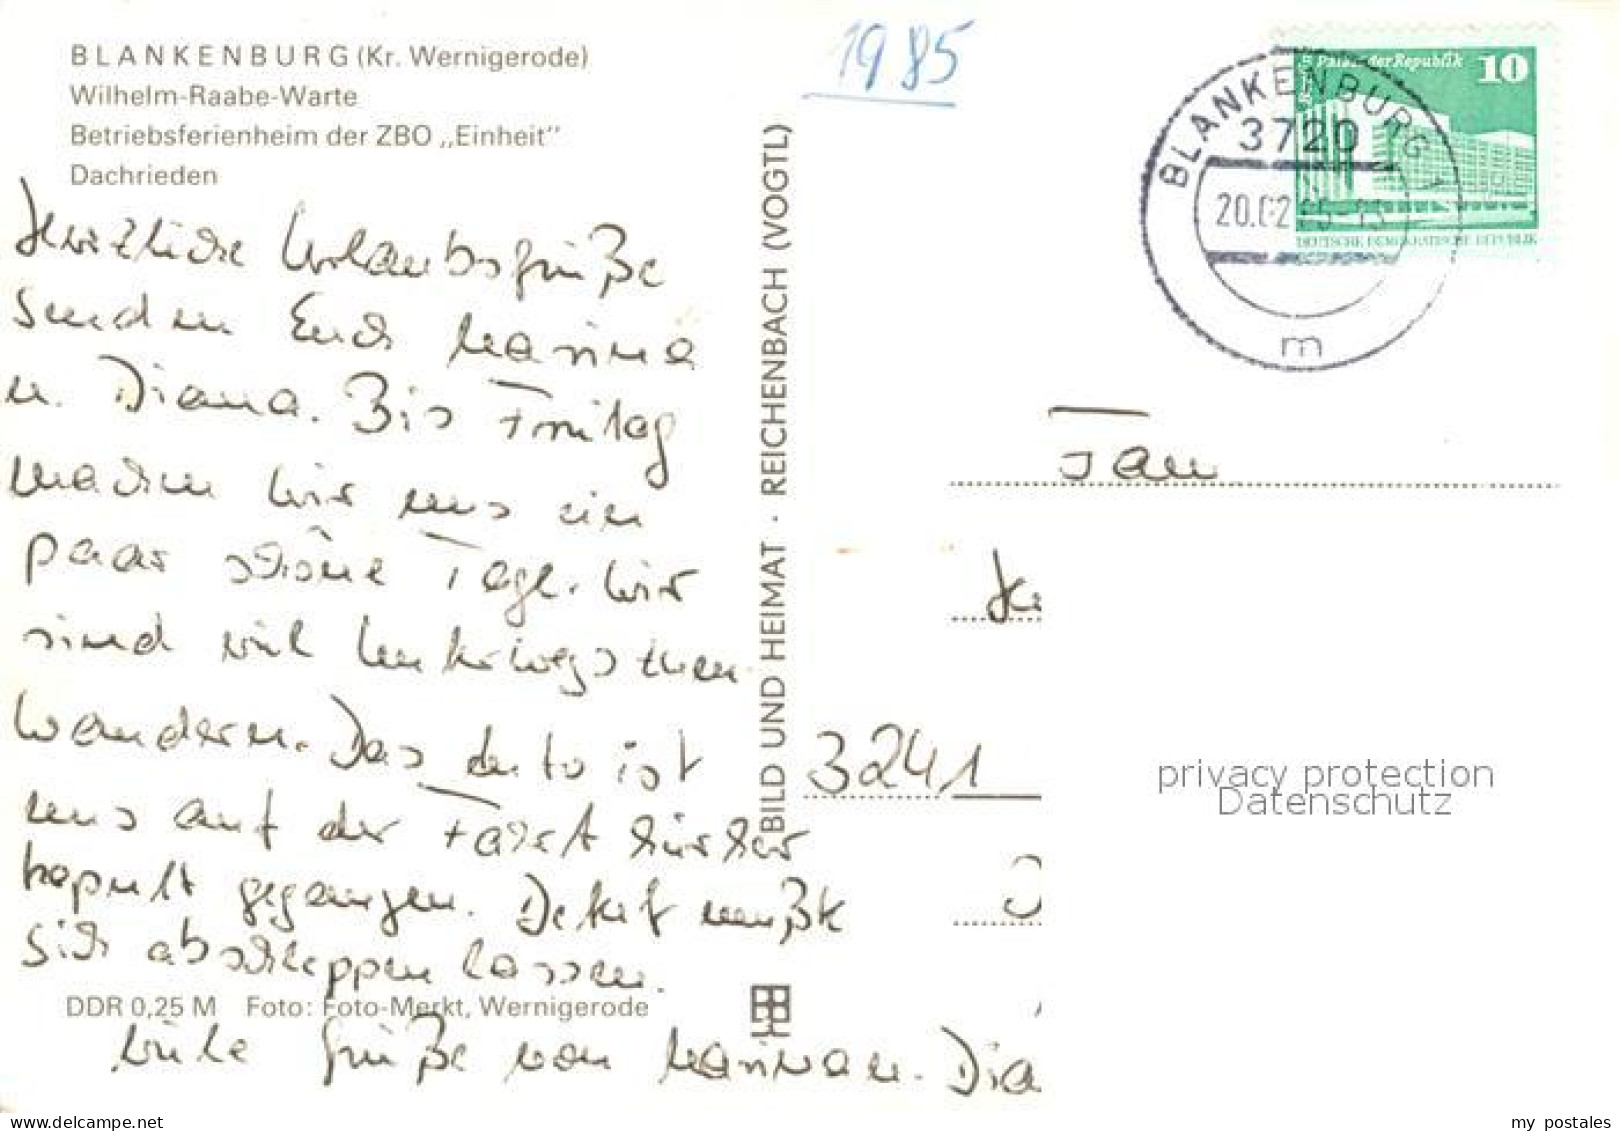 BLANKENBURG (Kr. Wernigerode)
Wilhelm-Raabe-Warte
Betriebsferienheim der ZBO „Einheit"
Dachrieden
1985
Palast der Republik 10
DEUTSCHE DEMOKRATISCHE REPUBLIK
BLANKENBURG 1
3720
20.02.85-13
m
Herzliche Urlaubsgrüße
senden Euch
u. Diana. Bis Freitag
machen wir uns ein
paar schöne Tage. Wir
sind viel unterwegs
wandern. Das Auto ist
uns auf der Fahrt hierher
kaputt gegangen. Detlef mußte
sich abschleppen lassen.
Viele Grüße von u. Dia
BILD UND HEIMAT · REICHENBACH (VOGTL)
Fam
3241
DDR 0,25 M Foto: Foto-Merkt, Wernigerode
privacy protection
Datenschutz
www.delcampe.net
my_postales